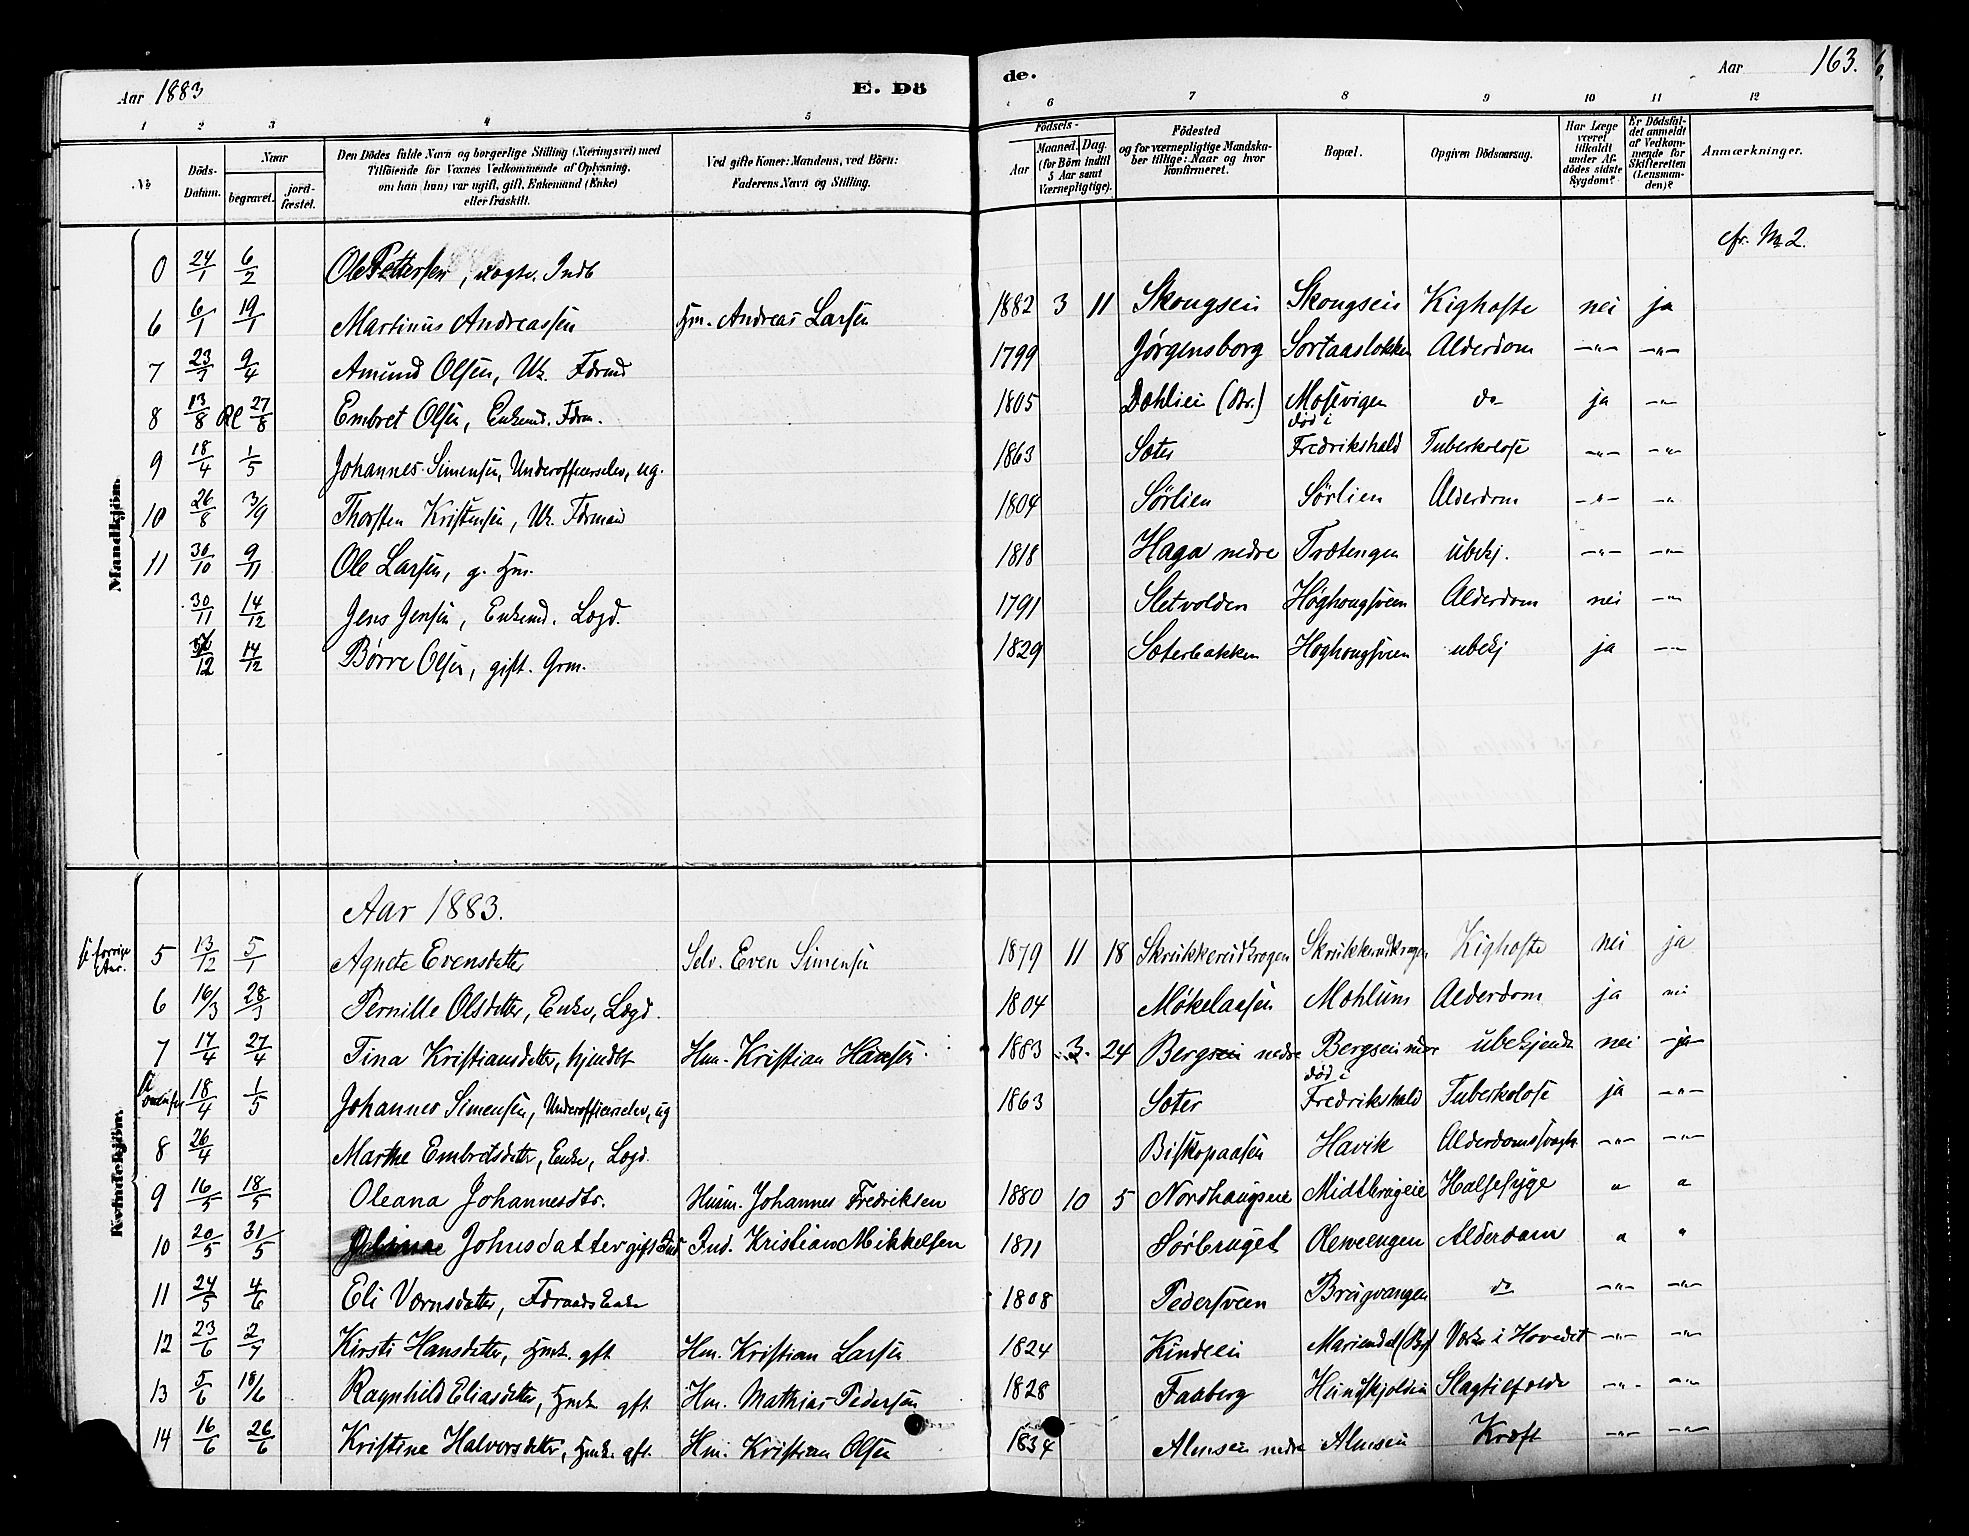 Aar 1883 E. Dö de. Aar 163.
1 2 3 4 5 6 7 8 9 10 11 12
No Döds-Datum. Naar begravet. jord-fæstet. Den Dödes fulde Navn og borgerlige Stilling (Næringsvei) med Tilföiende for Voxnes Vedkommende af Oplysning, om han (hun) var ugift, gift, Enkemand (Enke) eller fraskilt. Ved gifte Koner: Mandens, ved Börn: Faderens Navn og Stilling. Födsels- Aar Maaned. Dag. (for Börn indtil 5 Aar samt Værnepligtige). Födested og for værnepligtige Mandska-ber tillige: Naar og hvor konfirmeret. Bopæl. Opgiven Dödsaarsag. Har Læge været tilkaldt under Af-dödes sidste Sygdom? Er Dödsfal-det anmeldt af Vedkom-mende for Skifteretten (Lensman-den)? Anmærkninger.
Mandkjön.
0 24/1 6/2 Ole Pettersen, Indb cfr. No 2.
6 6/1 19/1 Martinus Andreassen Hm. Andreas Larsen 1882 3 11 Skougseie Skougseie Kighoste nei ja
7 23/3 9/4 Amund Olsen, Uk. Fdrmd 1799 Jørgensborg Sortaasløkken Alderdom -"- -"-
8 13/8 27/8 Embret Olsen, Enkemd. Fdrm. 1805 Dæhlie (Br.) Mosevigen do ja -"-
9 18/4 1/5 Johannes Simensen, Underofficerselev, ug. 1863 Sæter død i Fredrikshald Tuberkolose -"- -"-
10 26/8 3/9 Thorsten Kristensen, Uk. Fdrmand 1804 Sørlien Sørlien Alderdom -"- -"-
11 30/10 9/11 Ole Larsen, g. Hm. 1818 Haga nedre Trætengen ubekj. -"- -"-
30/11 14/12 Jens Jensen, Enkemd. Lægd. 1791 Sletvolden Høghougsveen Alderdom nei -"-
14/12 Børre Olsen, gift. Grm. 1829 Sæterbakken Høghougsveen ubekj ja -"-
Kvindekjön.
Aar 1883.
forrige Aar. 5 13/12 5/1 Agnete Evensdatter Selv. Even Simensen 1879 11 18 Skrukkereidkrogen Skrukkereidkrogen Kighoste nei ja
6 16/3 28/3 Pernille Olsdatter, Enke, Lægd. 1804 Møkelaasen Mæhlum Alderdom ja nei
7 17/4 27/4 Tina Kristiansdatter, hjmdbt Hm. Kristian Hansen 1883 3. 24 Bergseie nedre Bergseie nedre ubekjendt nei ja
18/4 1/5 Johannes Simensen, Underofficerselev, ug 1863 Sæter død i Fredrikshald Tuberkolose ja -"-
8 26/4 Marthe Embretsdatter, Enke, Lægd. Biskopaasen Havik Alderdomssvagh. -"- -"-
9 16/5 18/5 Oleana Johannesdtr. Husm. Johannes Fredriksen 1880 10 5 Nordhaugseie Midtbrugeie Halsesyge " "
10 20/5 31/5 Johnsdatter gift Ind. Ind. Kristian Mikkelsen 1811 Sørbruget Oleveengen Alderdom " "
11 24/5 4/6 Eli Værnsdatter, Fdraads Enke 1808 Pedersveen Brugvangen do -"- -"-
12 23/6 2/7 Kirsti Hansdatter, Hmk. gft Hm. Kristian Larsen 1824 Kindlie Mariendal (Br) Værk i Hovedet -"- -"-
13 5/6 18/6 Ragnhild Eliasdatter, Hmk gft Hm. Mathias Pedersen 1828 Faaberg Hundskjolden Slagtilfælde -"- -"-
14 16/6 26/6 Kristine Halvorsdatter, Hmk. gft. Hm. Kristian Olsen 1834 Almseie nedre Almseie Kræft -"- -"-